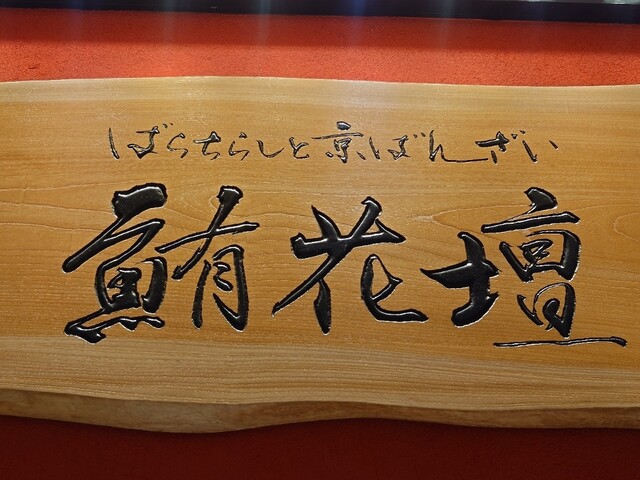 ばらちらしと京ばんざい
鮪花壇